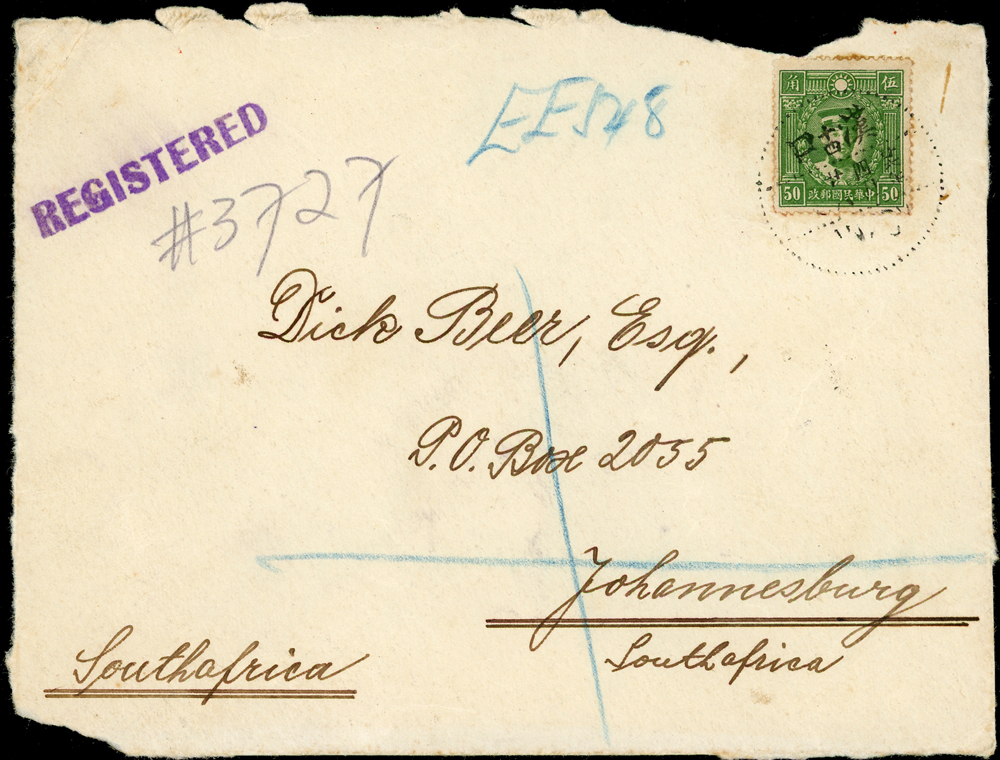 REGISTERED
#3727
角 伍
50 中華民國郵政 50
Dick Beer, Esq.,
P.O. Box 2055
Johannesburg
Southafrica
Southafrica